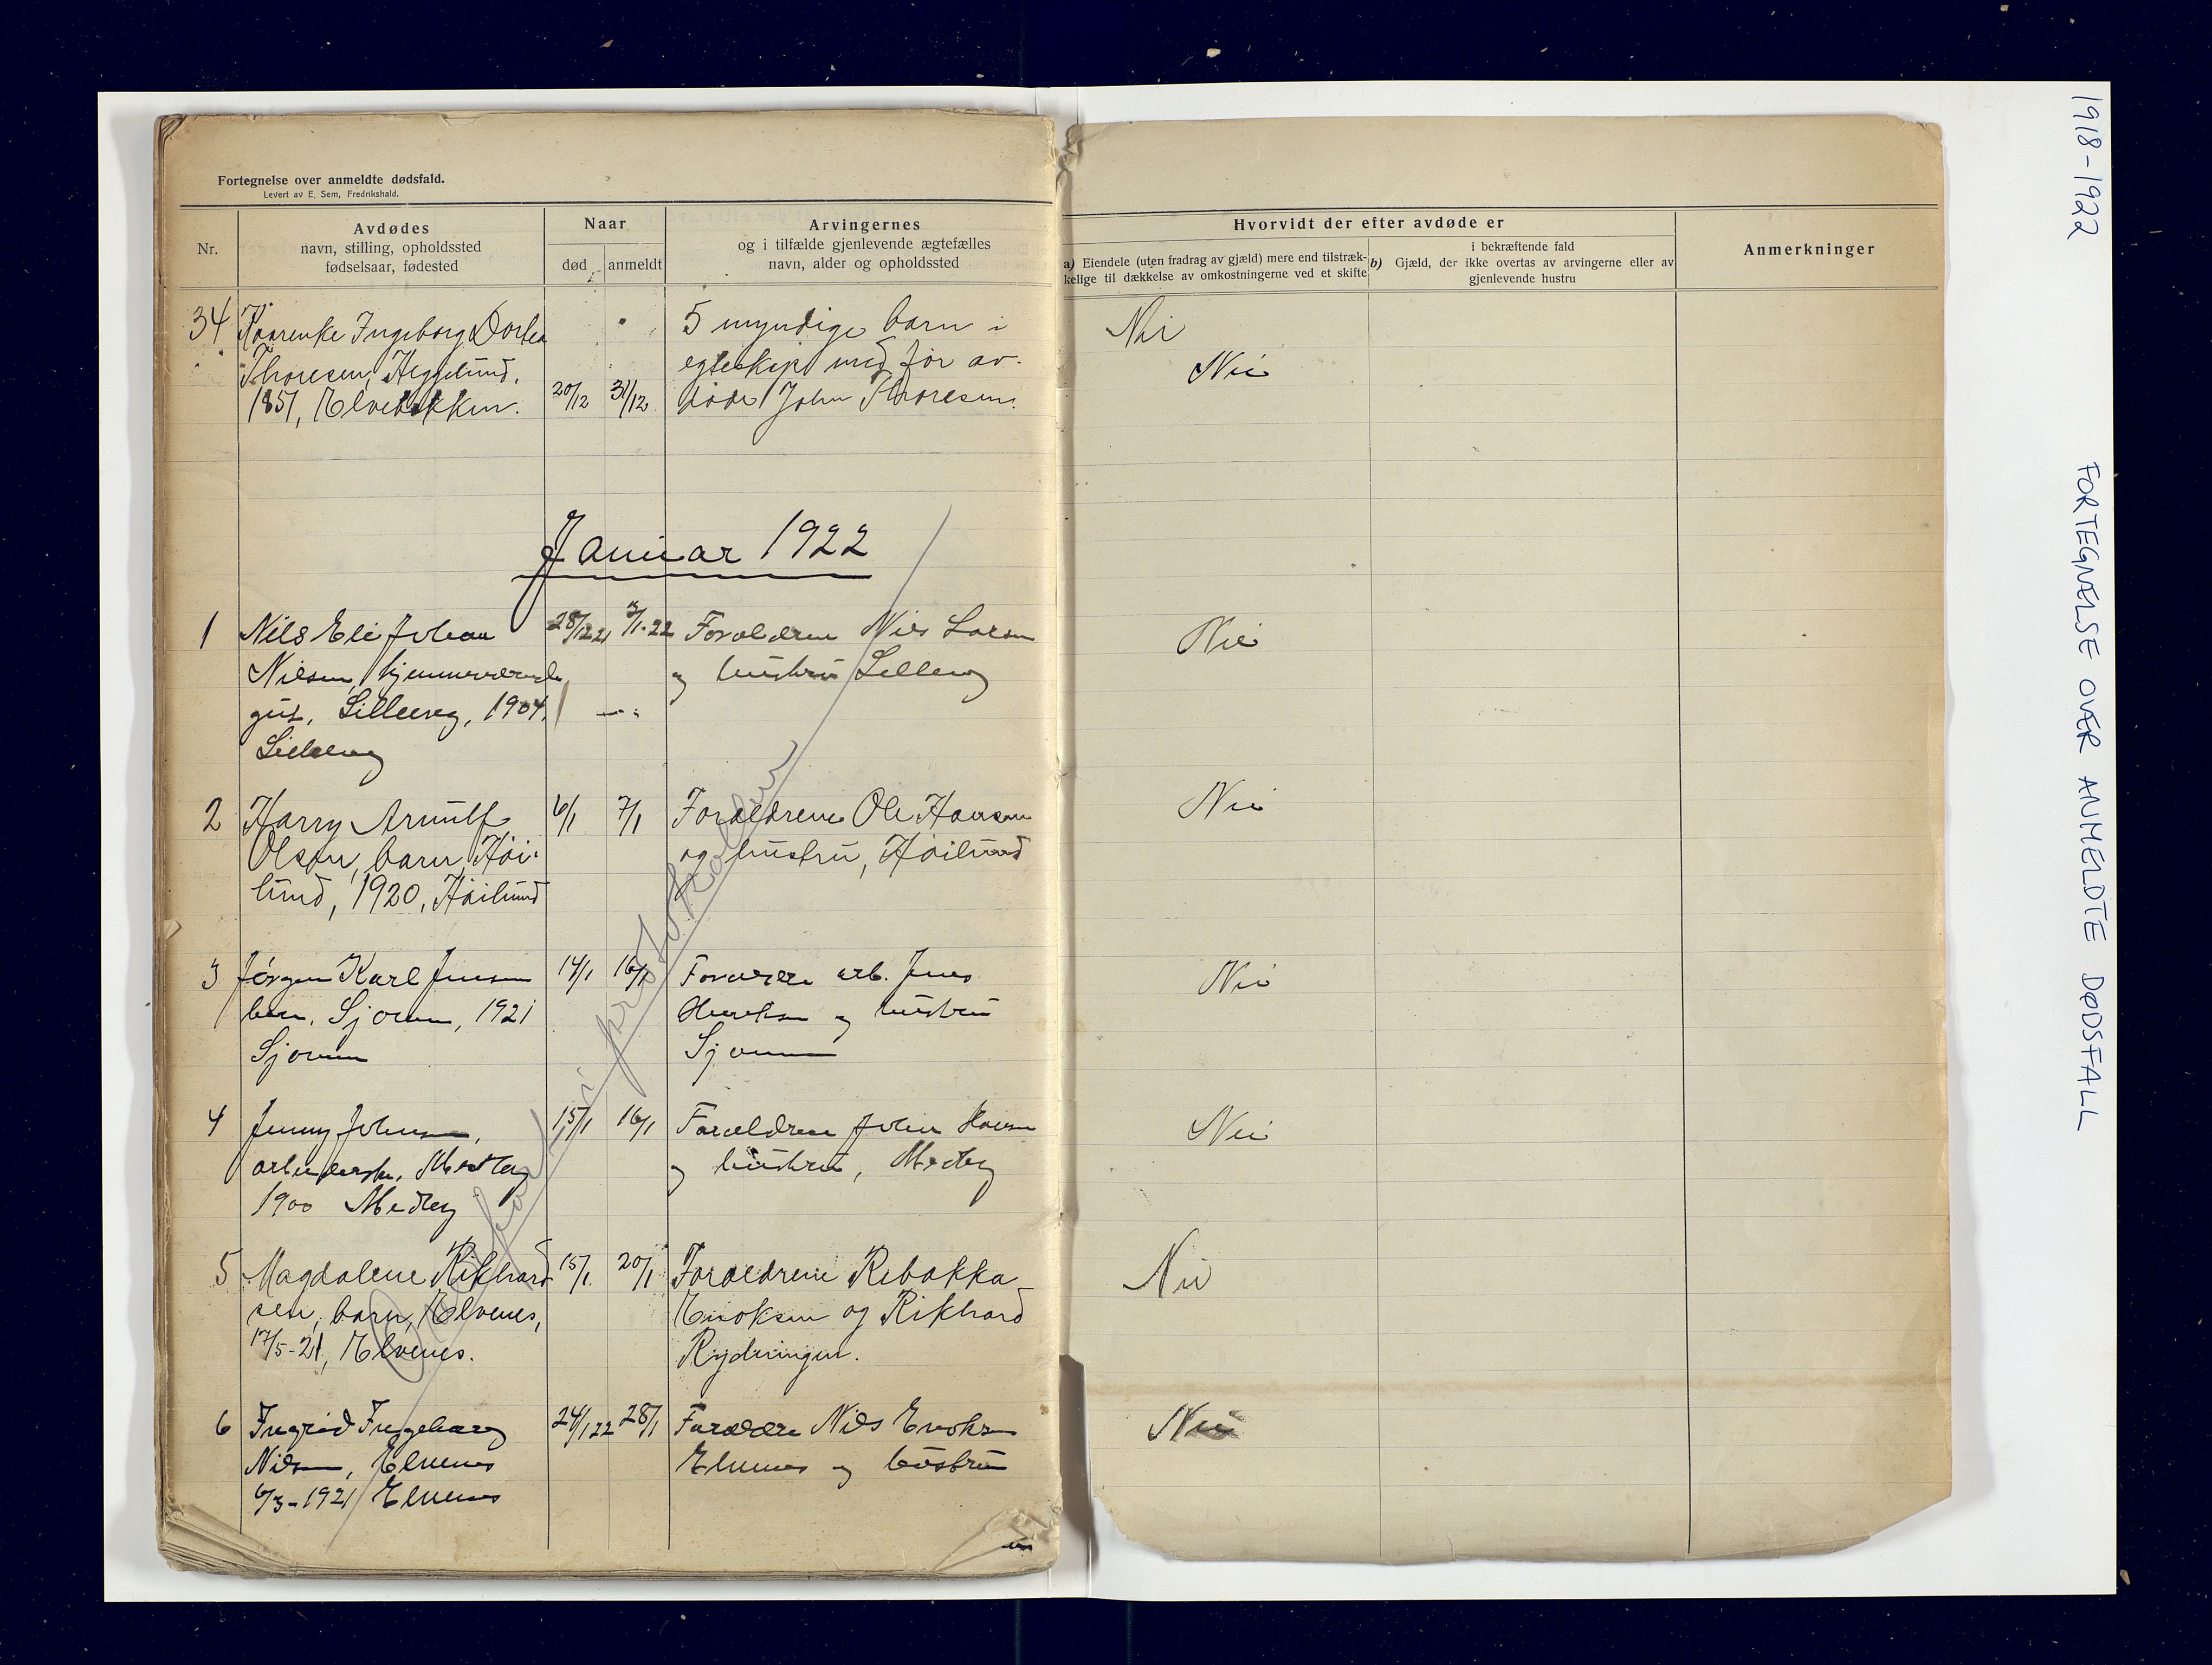 Fortegnelse over anmeldte dødsfald.
Levert av E. Sem, Fredrikshald.
Nr.
Avdødes
navn, stilling, opholdssted
fødselsaar, fødested
Naar
død
anmeldt
Arvingernes
og i tilfælde gjenlevende ægtefælles
navn, alder og opholdssted
34 Kaarenke Ingeborg Dortea
Thoresen, Heggelund,
1851, Elvebakken. 20/12 31/12
5 myndige barn i
egteskap med før av-
døde John Thoresen.
Januar 1922
1 Nils Eli Johan 28/12 21 3/1-22 Forældrene Nils Larsen
Nilsen, hjemmeværende og hustru Lilleng
gut, Lilleng, 1904,
Lilleng
2 Harry Arnulf 6/1 7/1 Forældrene Ole Hansen
Olsen, barn, Høi- og hustru, Høilund
lund, 1920, Høilund
3 Jørgen Karl Jensen 14/1 16/1 Forældre arb. Jens
barn, 1921 Henriksen og hustru
4 Jenny Johnsen, 15/1 16/1 Forældrene John Hansen
arbeiderske, Medby og hustru, Medby
1900 Medby
5 Magdalene Rikhard- 15/1 20/1 Forældrene Rebakka
sen, barn, Elvenes, Enoksen og Rikhard
17/5-21, Elvenes. Rydningen.
6 Ingrid Ingeborg 24/1 22 28/1 Forældre Nils Enoksen
Nilsen, Elvenes Elvenes og hustru
6/3-1921 Elvenes
i protokollen
Hvorvidt der efter avdøde er
a) Eiendele (uten fradrag av gjæld) mere end tilstræk-
kelige til dækkelse av omkostningerne ved et skifte
i bekræftende fald
b) Gjæld, der ikke overtas av arvingerne eller av
gjenlevende hustru
Anmerkninger
Nei
Nei
Nei
Nei
Nei
Nei
Nei
Nei
1918-1922 FORTEGNELSE OVER ANMELDTE DØDSFALL